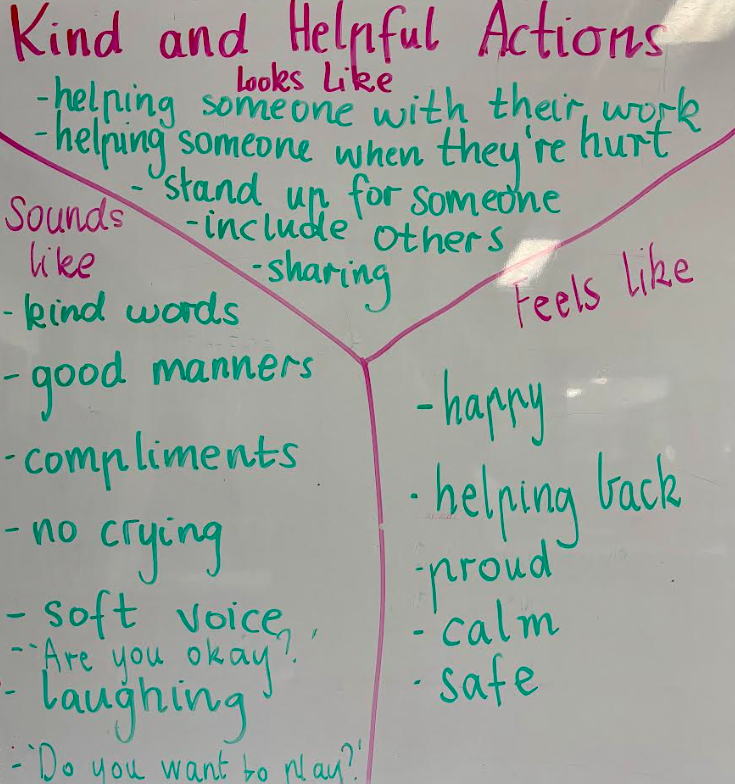 Kind and Helpful Actions
Looks Like
-helping someone with their work
-helping someone when they're hurt
- stand up for someone
-include others
-sharing
Sounds
like
- kind words
- good manners
-compliments
- no crying
- soft voice
-"Are you okay?"
- laughing
-"Do you want to play?"
Feels like
-happy
- helping back
-proud
- calm
- safe